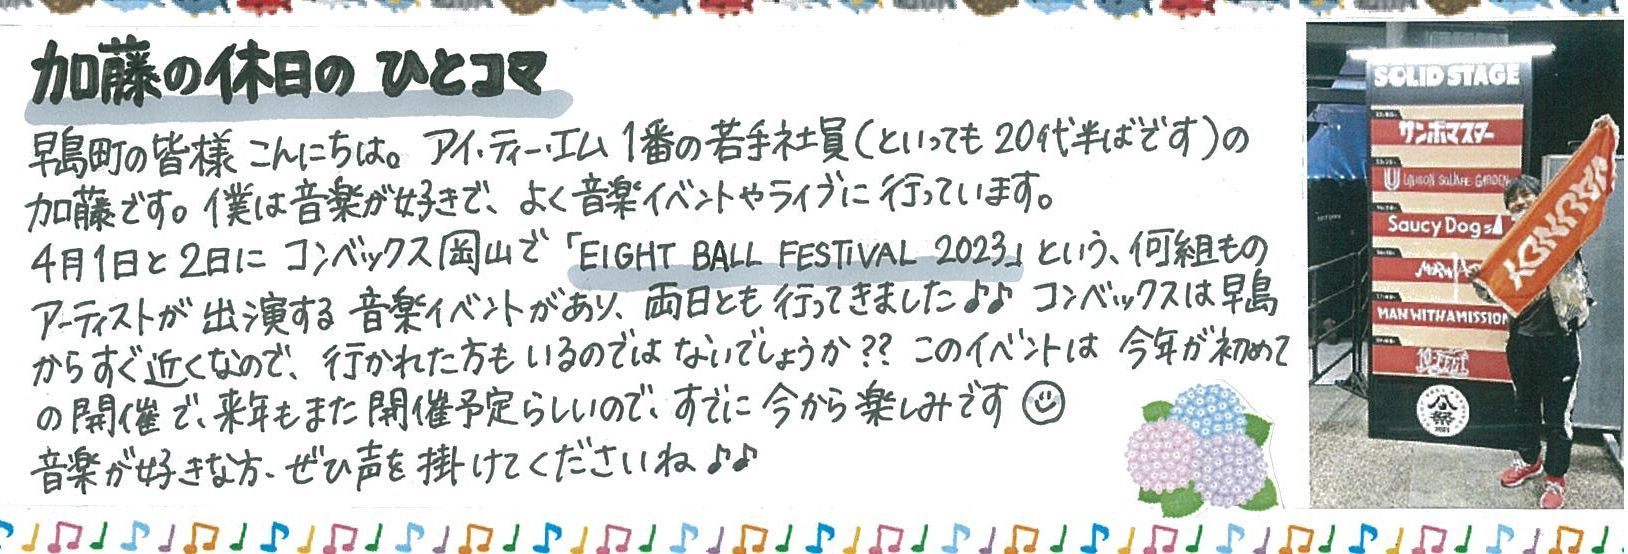 加藤の休日の ひとコマ
早島町の皆様 こんにちは。 アイ・ティー・エム 1番の若手社員(といっても 20代半ばです)の
加藤です。僕は音楽が好きで、よく音楽イベントやライブに行っています。
4月1日と2日に コンベックス岡山で「EIGHT BALL FESTIVAL 2023」という、何組もの
アーティストが出演する 音楽イベントがあり、両日とも行ってきました♪♪ コンベックスは早島
からすぐ近くなので、行かれた方もいるのではないでしょうか?? このイベントは 今年が初めて
の開催で、来年もまた開催予定らしいので、すでに今から楽しみです☺
音楽が好きな方、ぜひ声を掛けてくださいね♪♪
SOLID STAGE
サンボマスター
UNISON SQUARE GARDEN
Saucy Dog
MAN WITH A MISSION
10-FEET